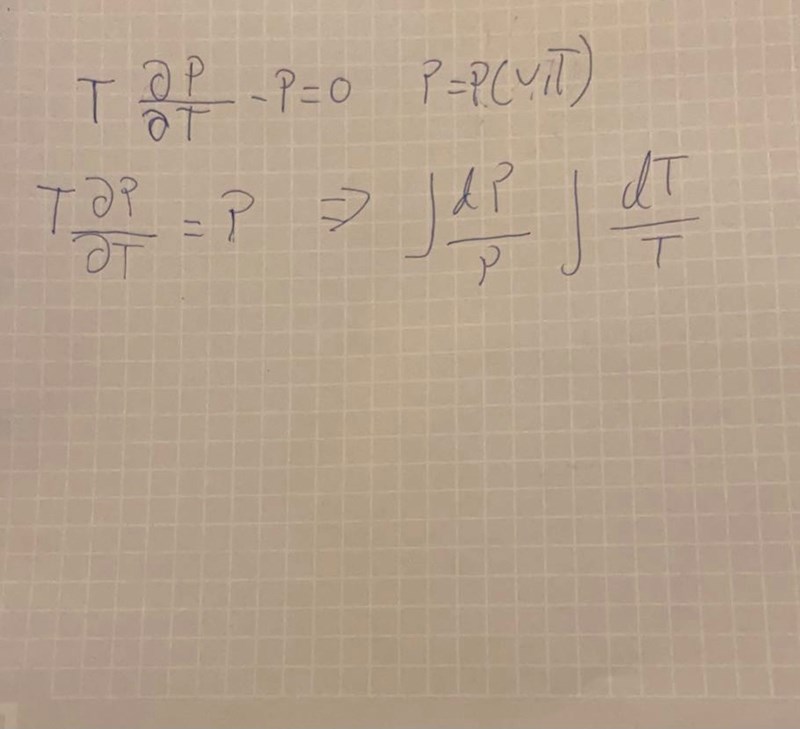 T ∂P/∂T - P = 0 P = P(V,T)
T ∂P/∂T = P ⇒ ∫ dP/P ∫ dT/T